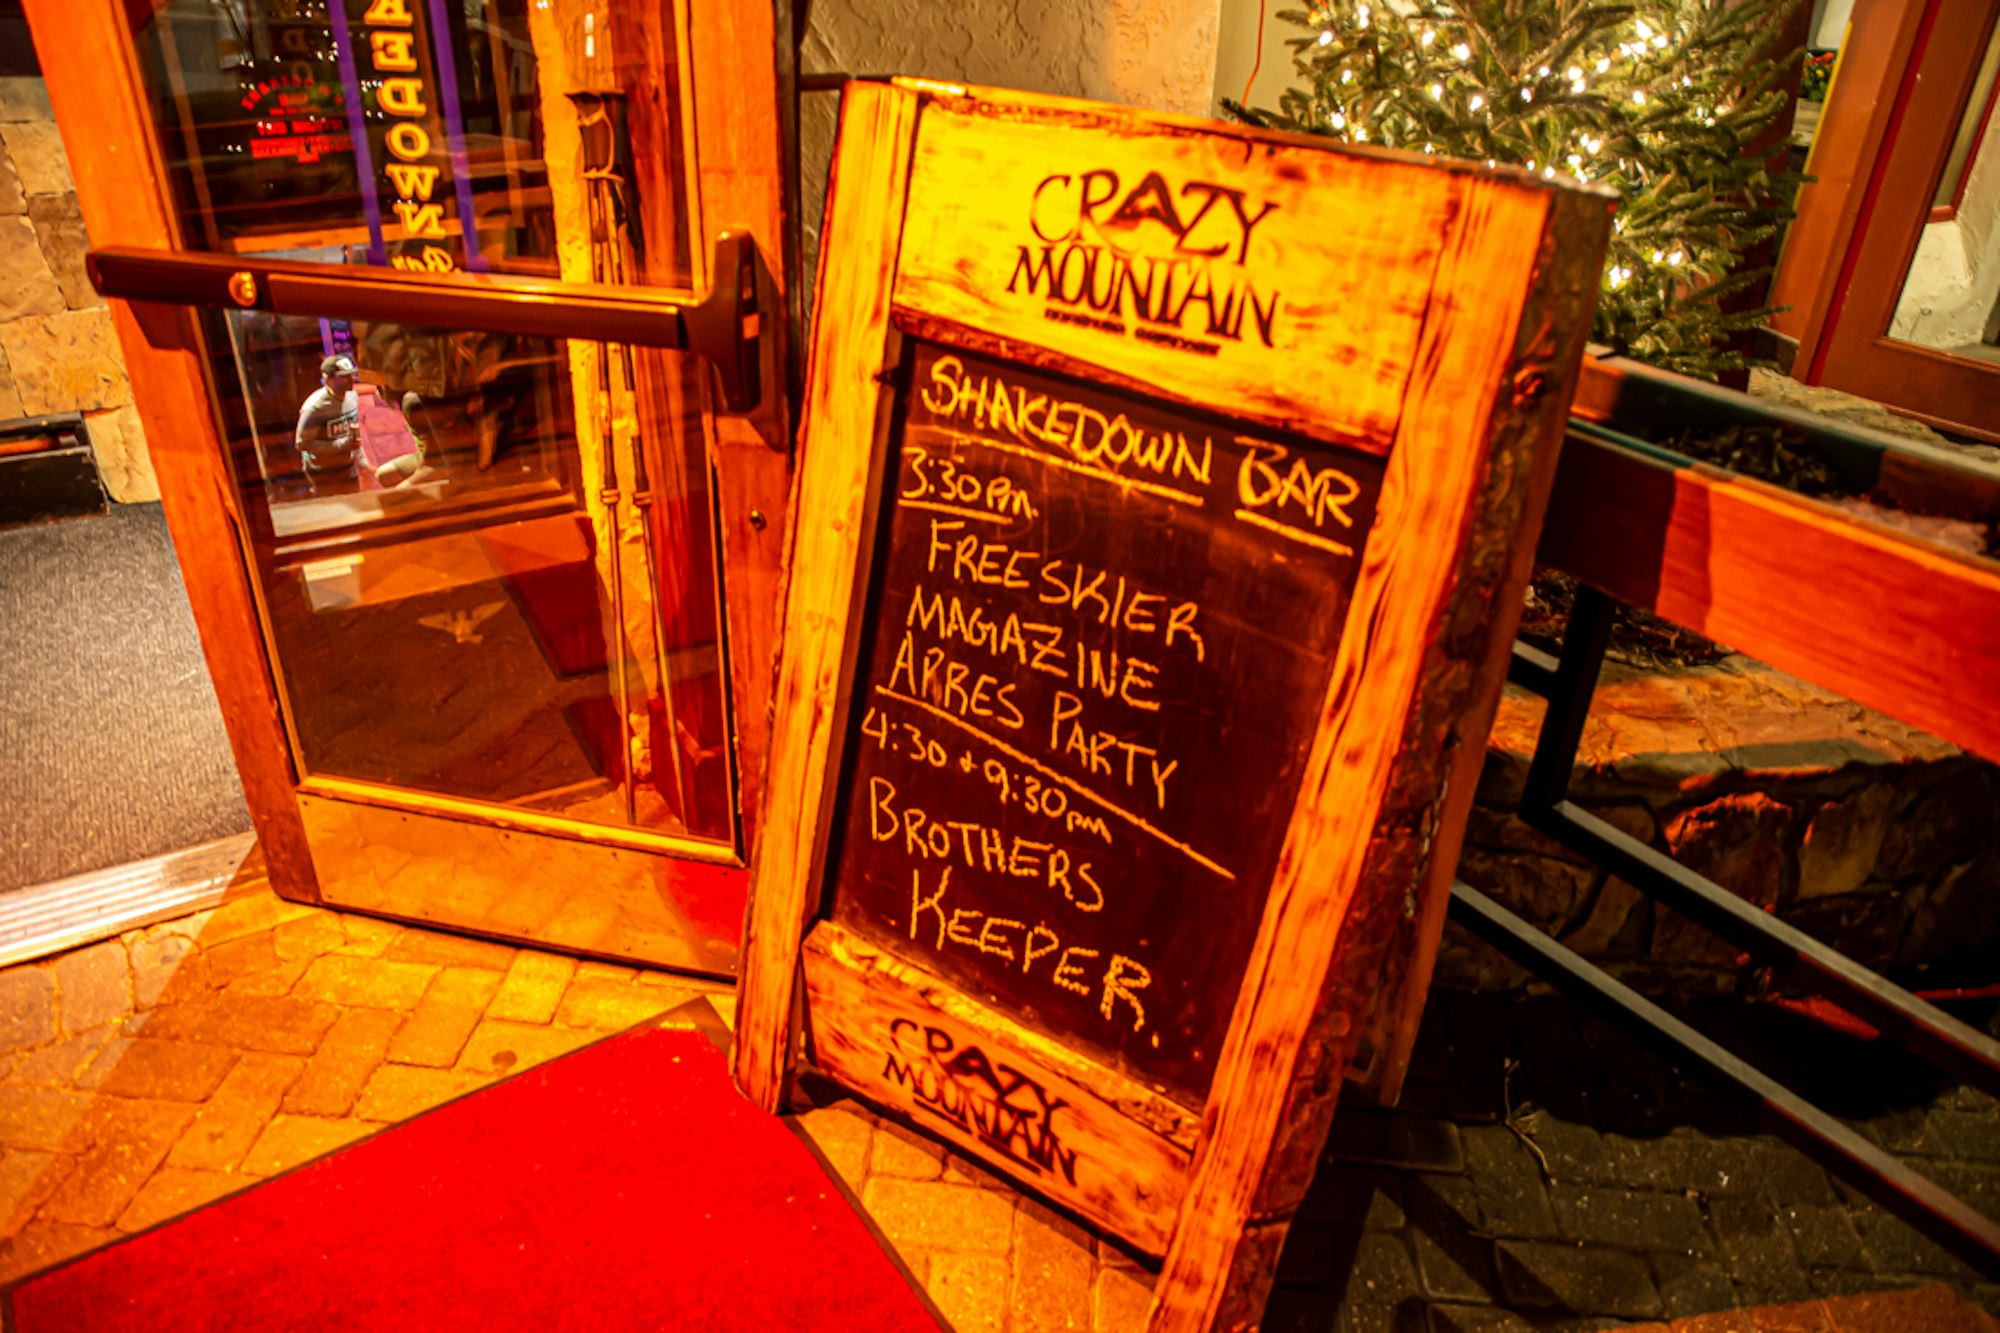 CRAZY
MOUNTAIN
SHAKEDOWN BAR
3:30 PM.
FREESKIER
MAGAZINE
APRES PARTY
4:30 + 9:30PM
BROTHERS
KEEPER.
CRAZY
MOUNTAIN
EDOWN
Bar